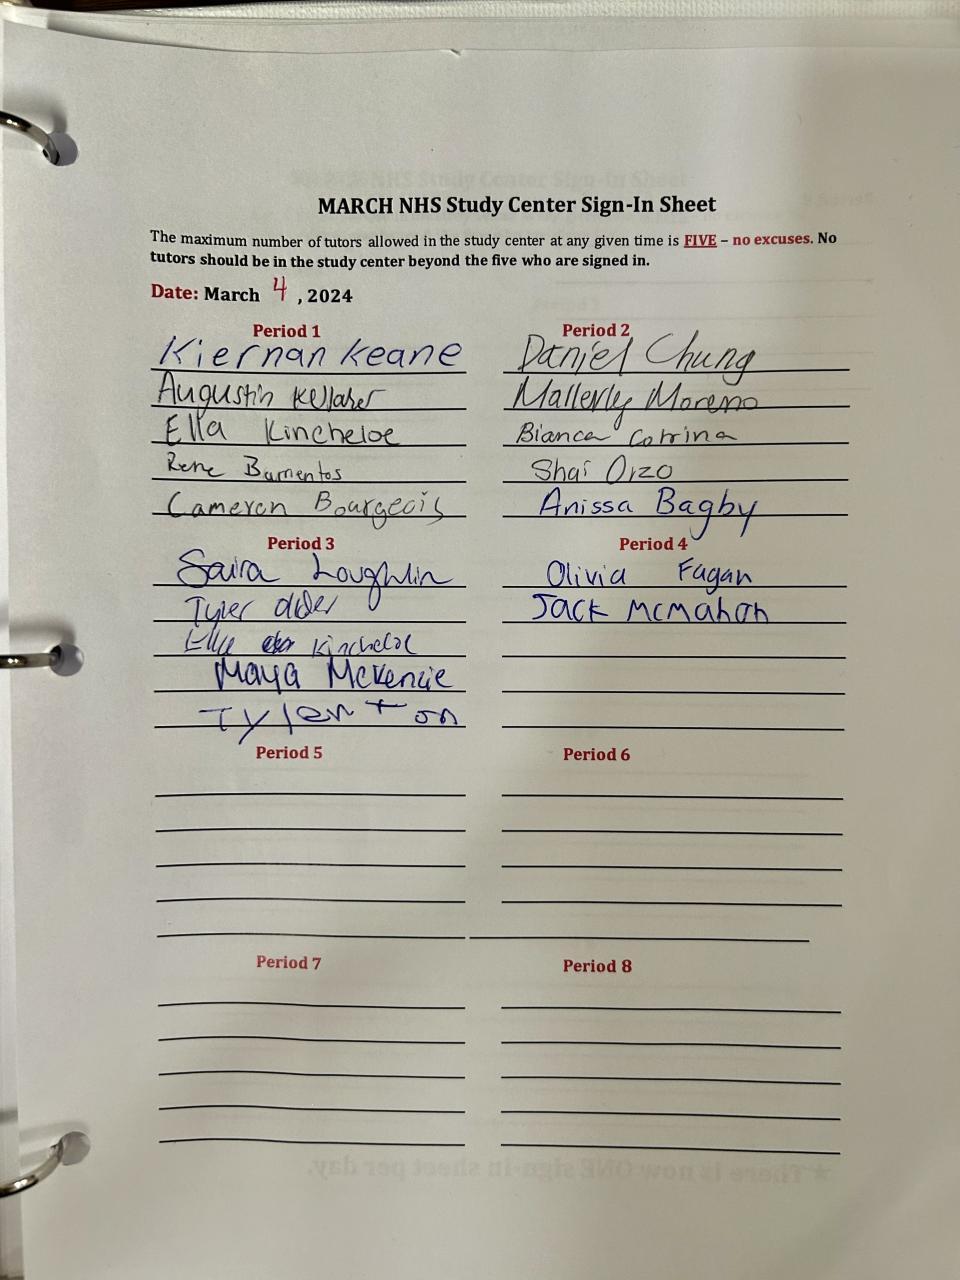 MARCH NHS Study Center Sign-In Sheet
The maximum number of tutors allowed in the study center at any given time is FIVE – no excuses. No
tutors should be in the study center beyond the five who are signed in.
Date: March 4, 2024
Period 1
Kiernan Keane
Augustin
Ella Kincheloe
Rene Barrientos
Cameron Bourgeois
Period 2
Daniel Chung
Moreno
Bianca Cotrina
Shai Orzo
Anissa Bagby
Period 3
Saira Loughlin
Tyler alder
Kincheloe
Maya McKenzie
Period 4
Olivia Fagan
Jack McMahon
Period 5
Period 6
Period 7
Period 8
★ There is now ONE sign-in sheet per day.